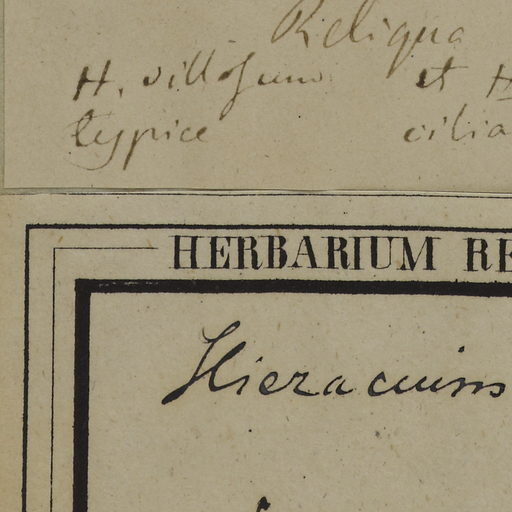 Reliqua
H. villosum et H
typice cilia
HERBARIUM RE
Hieracium